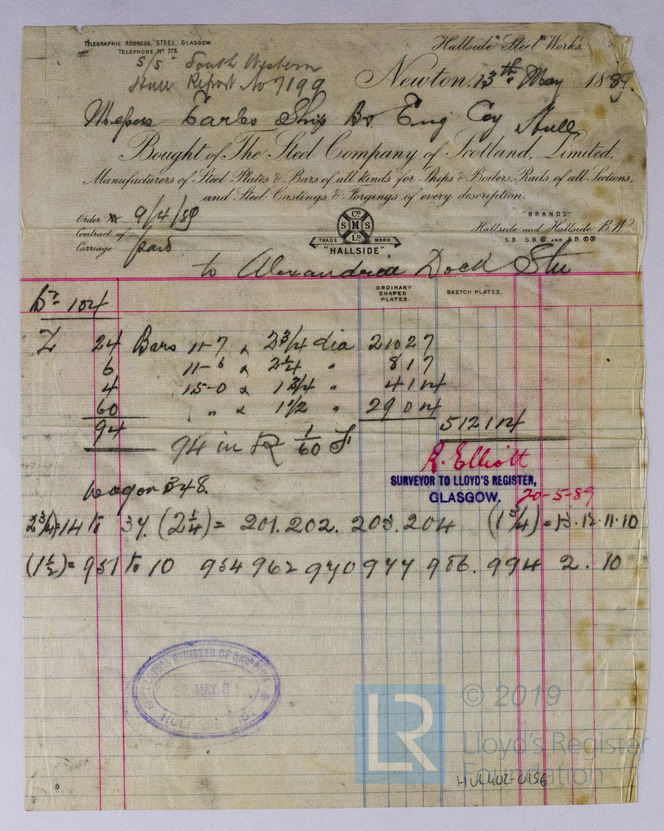 TELEGRAPHIC ADDRESS, "STEEL", GLASGOW.
TELEPHONE No 773
Hallside Steel Works,
S/S "South Western
Hull Report No 7199
Newton, 13th May 1889.
Messrs Earles Ship Bg Eng Coy Hull
Bought of The Steel Company of Scotland, Limited,
Manufacturers of Steel Plates & Bars of all kinds for Ships & Boilers, Rails of all Sections,
and Steel Castings & Forgings of every description.
Order 9/4/89
Contract of
Carriage paid
S Co S M Ld
TRADE MARK
"HALLSIDE"
"BRANDS"
Hallside and Hallside B.W
S.B. S.B. AND S.B.
to Alexandria Dock Stn
ORDINARY SHAPED PLATES.
SKETCH PLATES.
104
24 Bars 11-7 x 2 3/4 dia 21027
6 11-6 x 2 1/4 " 817
4 15-0 x 1 3/4 " 414
60 " " x 1 1/2 " 2904
94 5121
94 in 1/60
Wagon 348.
R. Elliott
SURVEYOR TO LLOYD'S REGISTER,
GLASGOW. 20-5-89
(2 3/4)=14 to 37. (2 1/4)= 201. 202. 203. 204 (1 3/4)=13.12.11.10
(1 1/2)= 951 to 10 954 962 970 977 986. 994 2. 10
LLOYD'S REGISTER OF
MAY
HULL
LR
© 2019
Lloyd's Register
Foundation
HUL402-0156